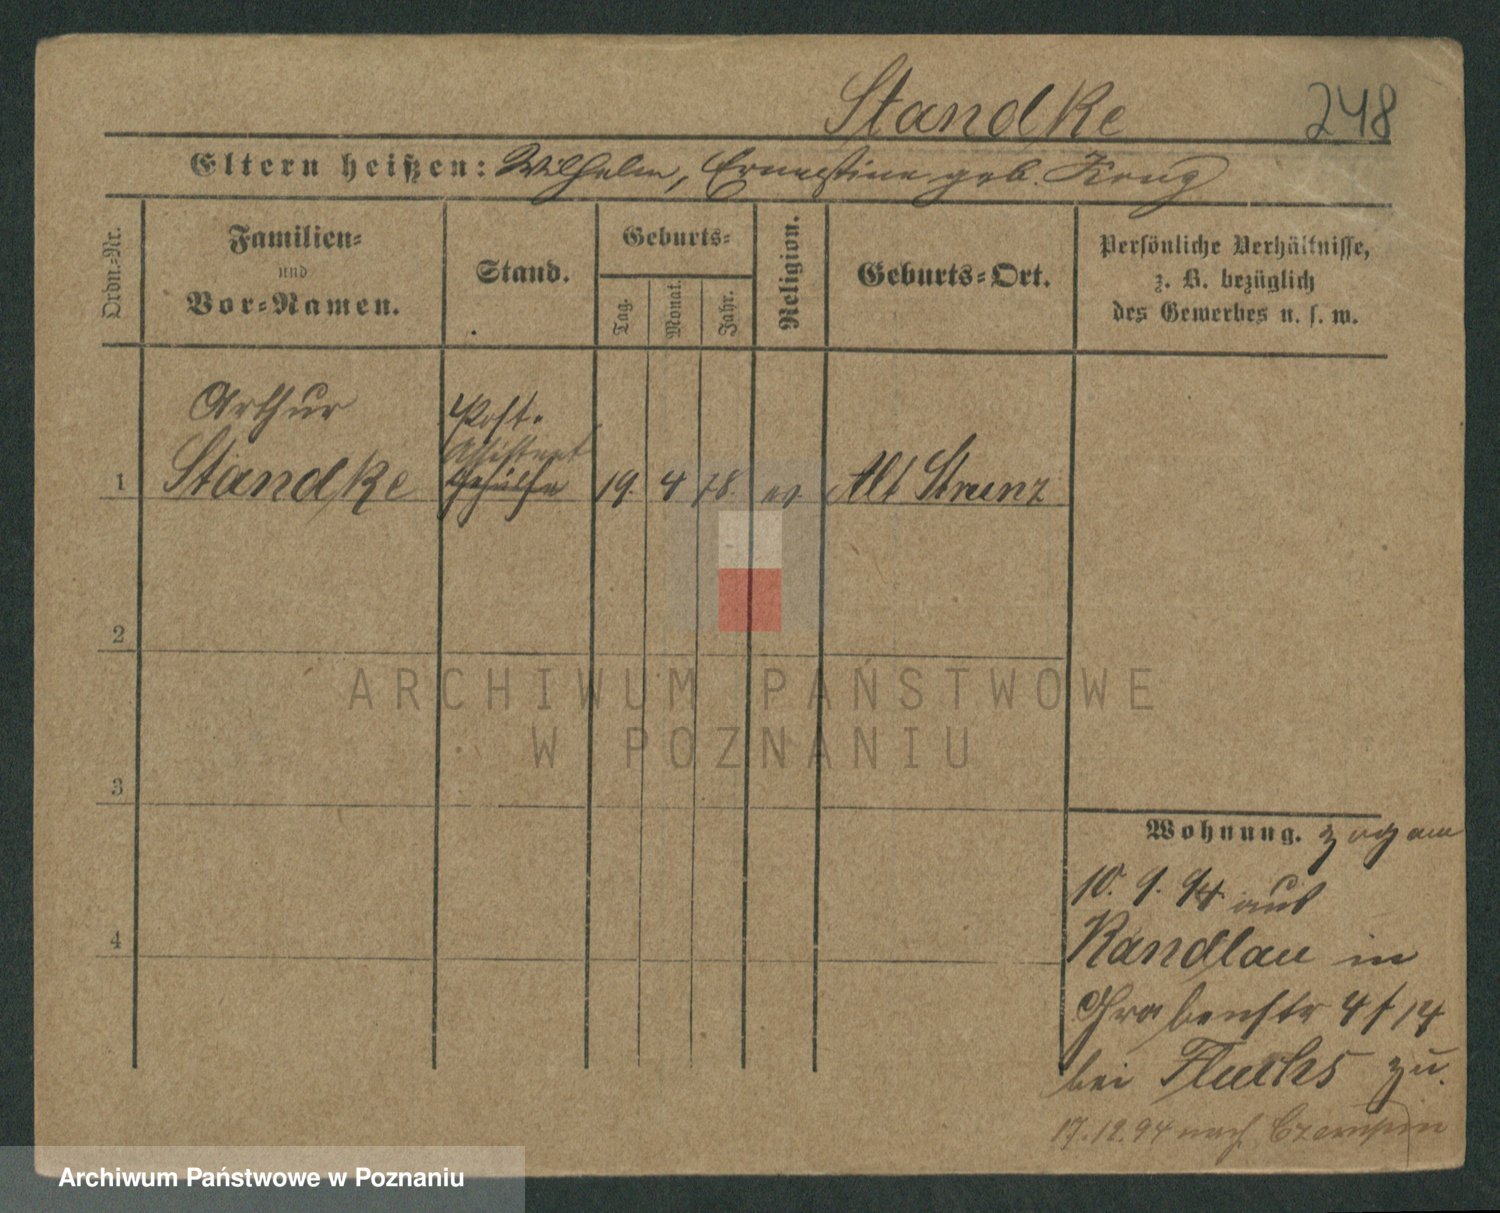 Standke 248
Eltern heißen: Wilhelm, Ernestine geb. Krug
Ordn.-Nr.
Familien-
und
Vor-Namen.
Stand.
Geburts-
Tag.
Monat.
Jahr.
Religion.
Geburts-Ort.
Persönliche Verhältnisse,
z. B. bezüglich
des Gewerbes u. s. w.
Arthur
Standke
Post-
Assistent
Gehülfe
1 19. 4 78. ev Alt Strunz
2
3
4
Wohnung. zog am
10. 9. 94 aus
Kandlau in
Grabenstr 4/14
bei Fluchs zu.
17.12.94 nach
ARCHIWUM PAŃSTWOWE
W POZNANIU
Archiwum Państwowe w Poznaniu